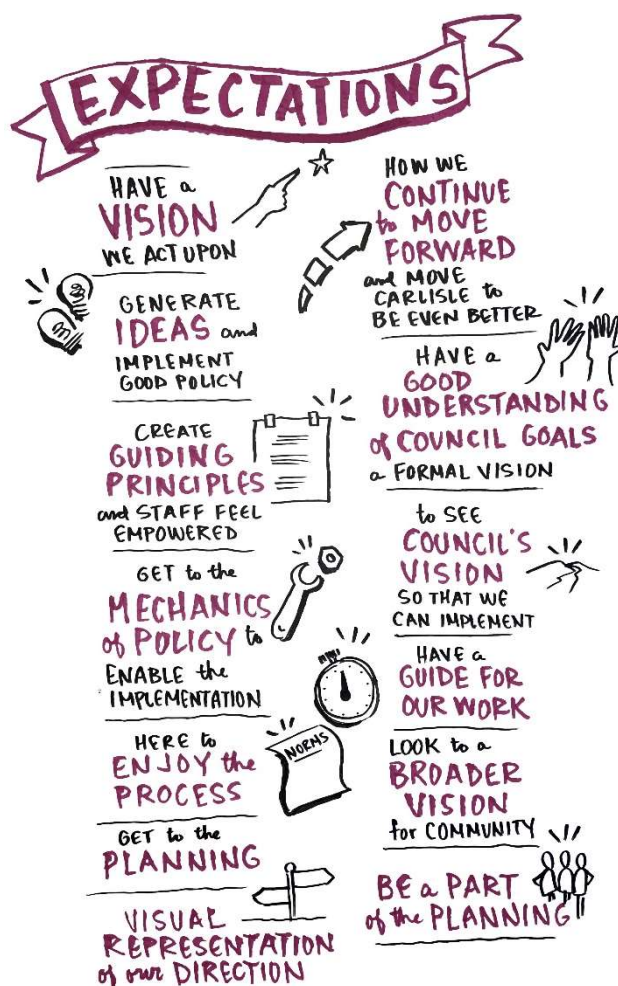 EXPECTATIONS
HAVE a
VISION
WE ACT UPON
GENERATE
IDEAS and
IMPLEMENT
GOOD POLICY
CREATE
GUIDING
PRINCIPLES
and STAFF FEEL
EMPOWERED
GET to the
MECHANICS
of POLICY to
ENABLE the
IMPLEMENTATION
HERE to
ENJOY the
PROCESS
NORMS
GET to the
PLANNING
VISUAL
REPRESENTATION
of our DIRECTION
HOW WE
CONTINUE
to MOVE
FORWARD
and MOVE
CARLISLE to
BE EVEN BETTER
HAVE a
GOOD
UNDERSTANDING
of COUNCIL GOALS
a FORMAL VISION
to SEE
COUNCIL'S
VISION
SO THAT WE
CAN IMPLEMENT
HAVE a
GUIDE FOR
OUR WORK
LOOK to a
BROADER
VISION
for COMMUNITY
BE a PART
of the PLANNING